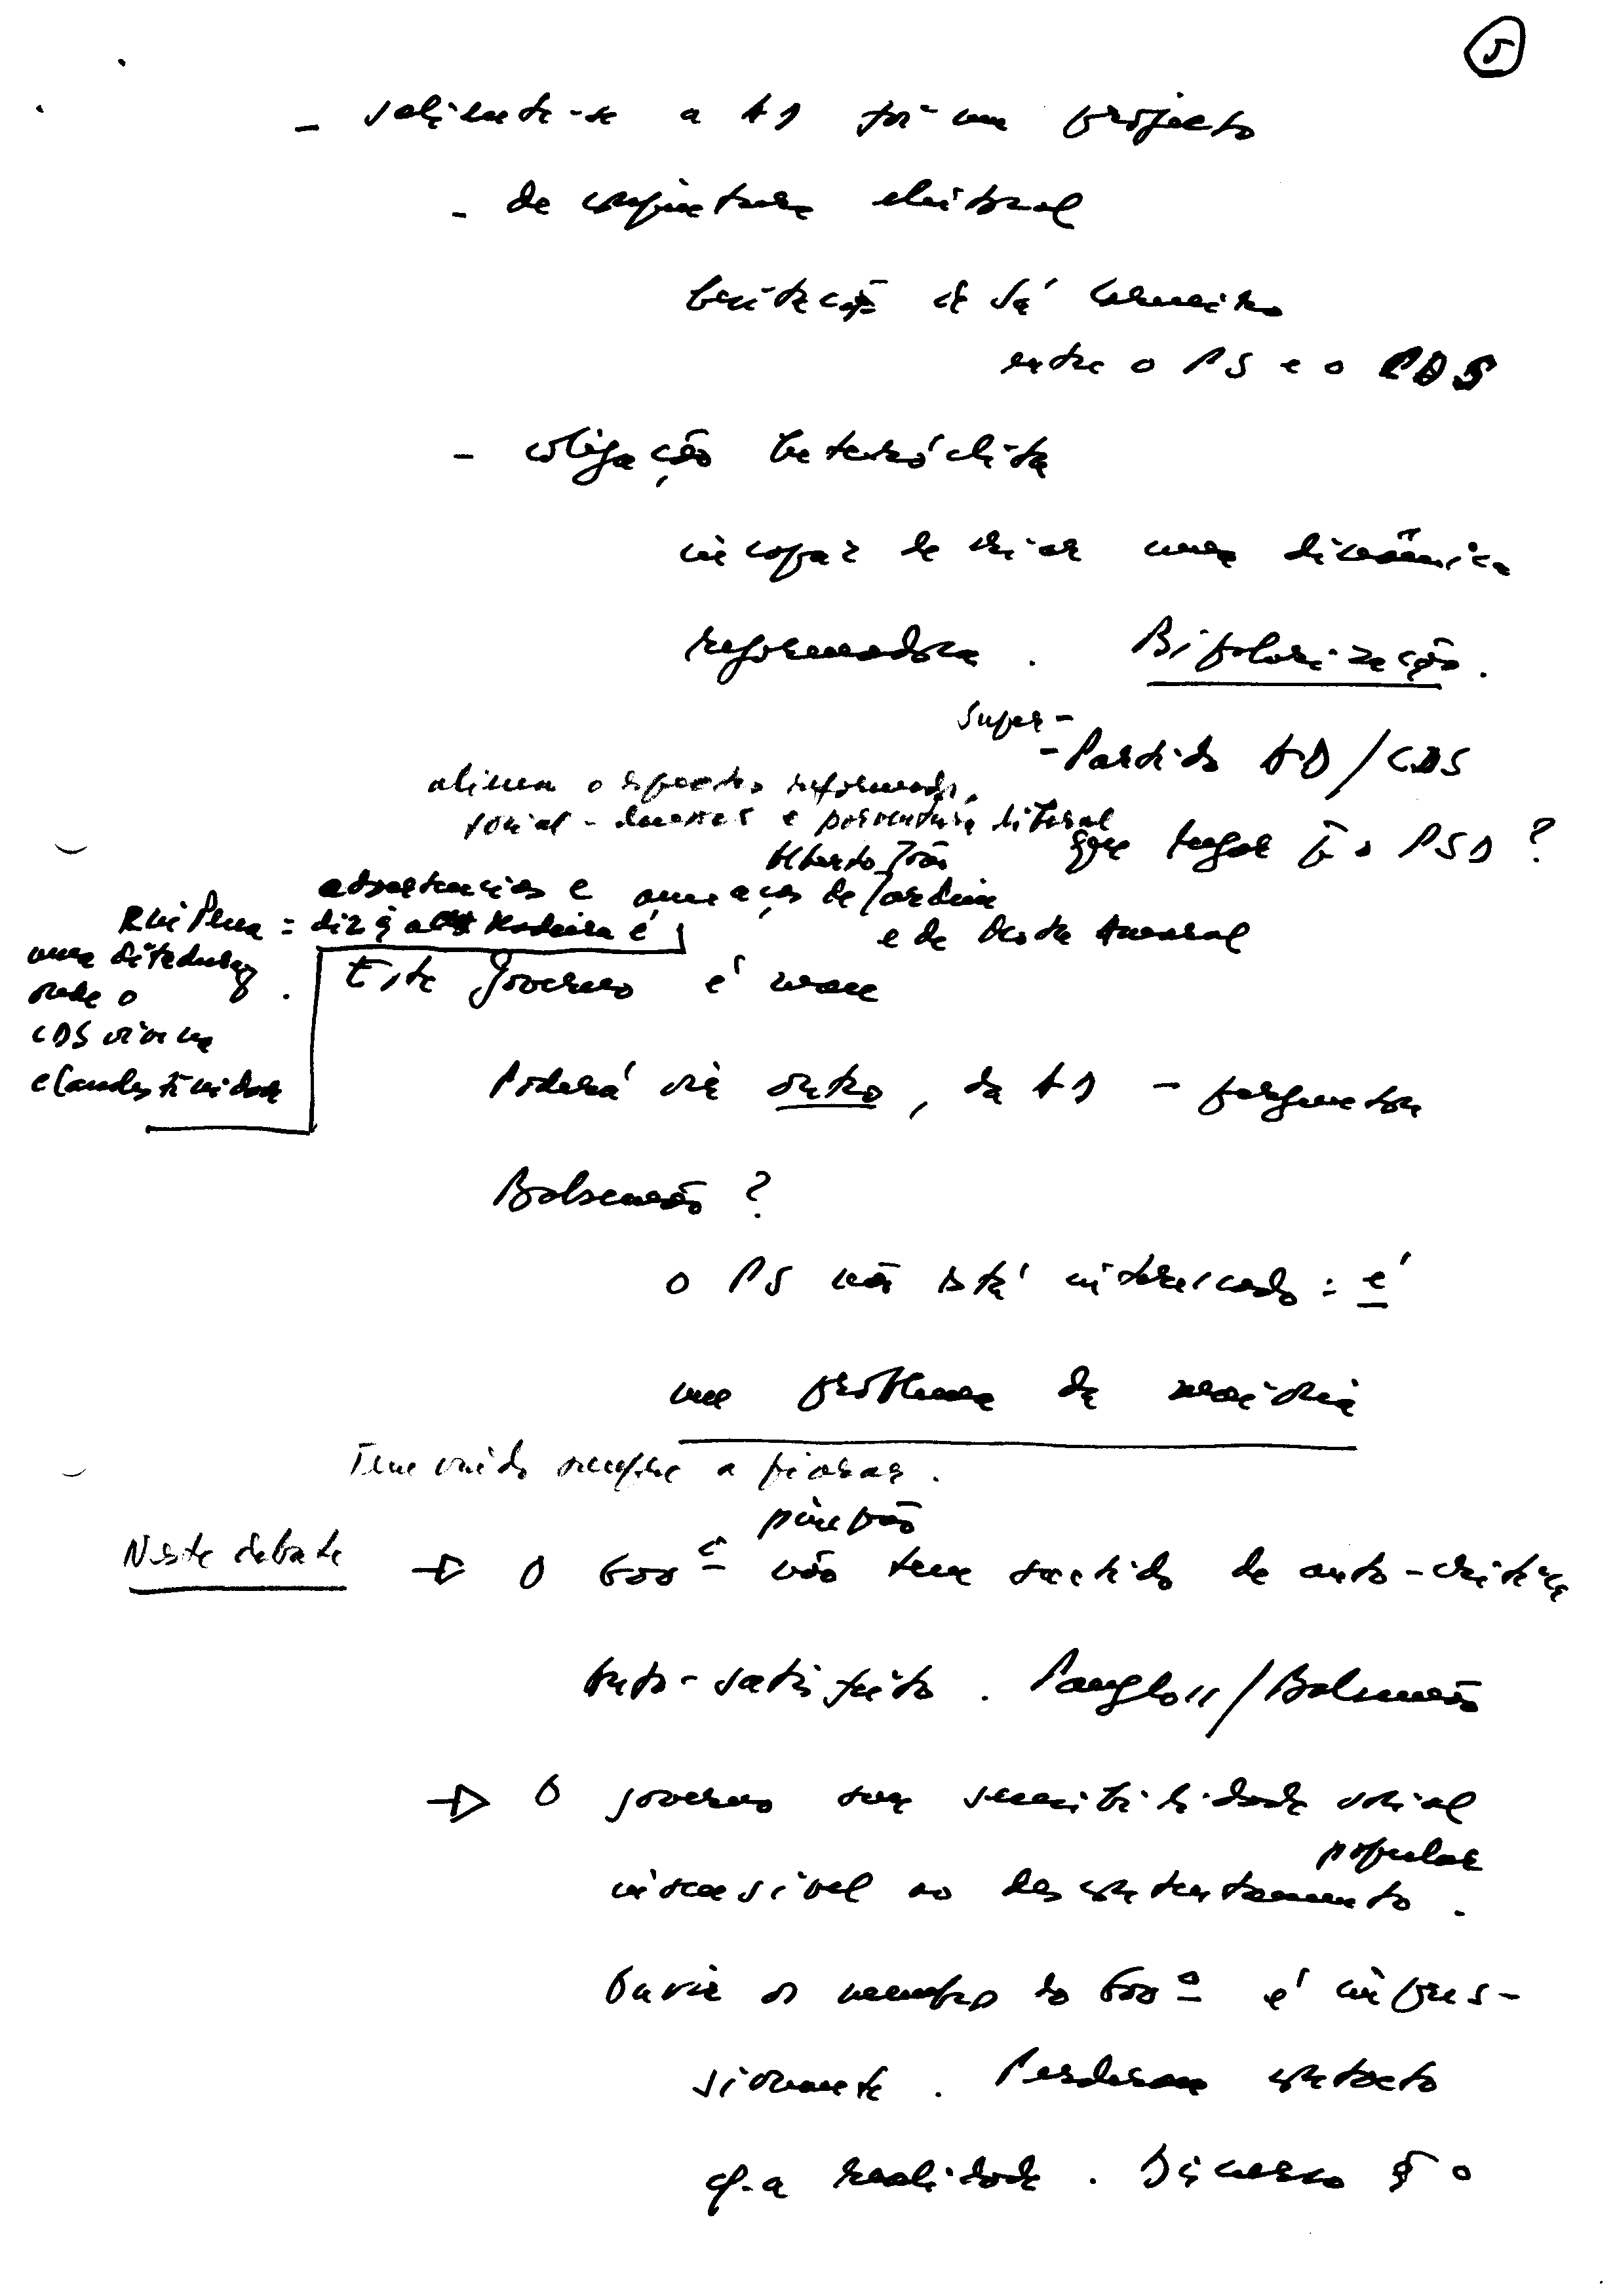 5
- saliente-se a AD foi um projecto
- de conjuntura eleitoral
hesitação de Sá Carneiro
entre o PS e o CDS
- coligação heteróclita
incapaz de criar uma dinâmica
reformadora. Bipolarização.
Super-
- Partido AD/CDS
aliena o espectro reformador,
social-democrata e porventura liberal
que lugar p.ª o PSD?
Alberto João
advertências e ameaças de Jardim
e de Mota Amaral
Rui Pena = diz q a Madeira é
uma ditadura
onde o
CDS vive na
clandestinidade
Este Governo é mau
Poderá vir outro, da AD - pergunta
Balsemão?
o PS não está interessado: é
um problema da maioria
Tem vindo sempre a piorar.
pinpão
Neste debate → O Gov.º não tem sentido de auto-crítica
Auto-satisfeito. Pangloss/Balsemão
→ O governo sem sensibilidade social
popular
insensível ao descontentamento.
Ouvir os membros do Gov.º é impres-
sionante. Perderam contacto
c/ a realidade. Discurso q o